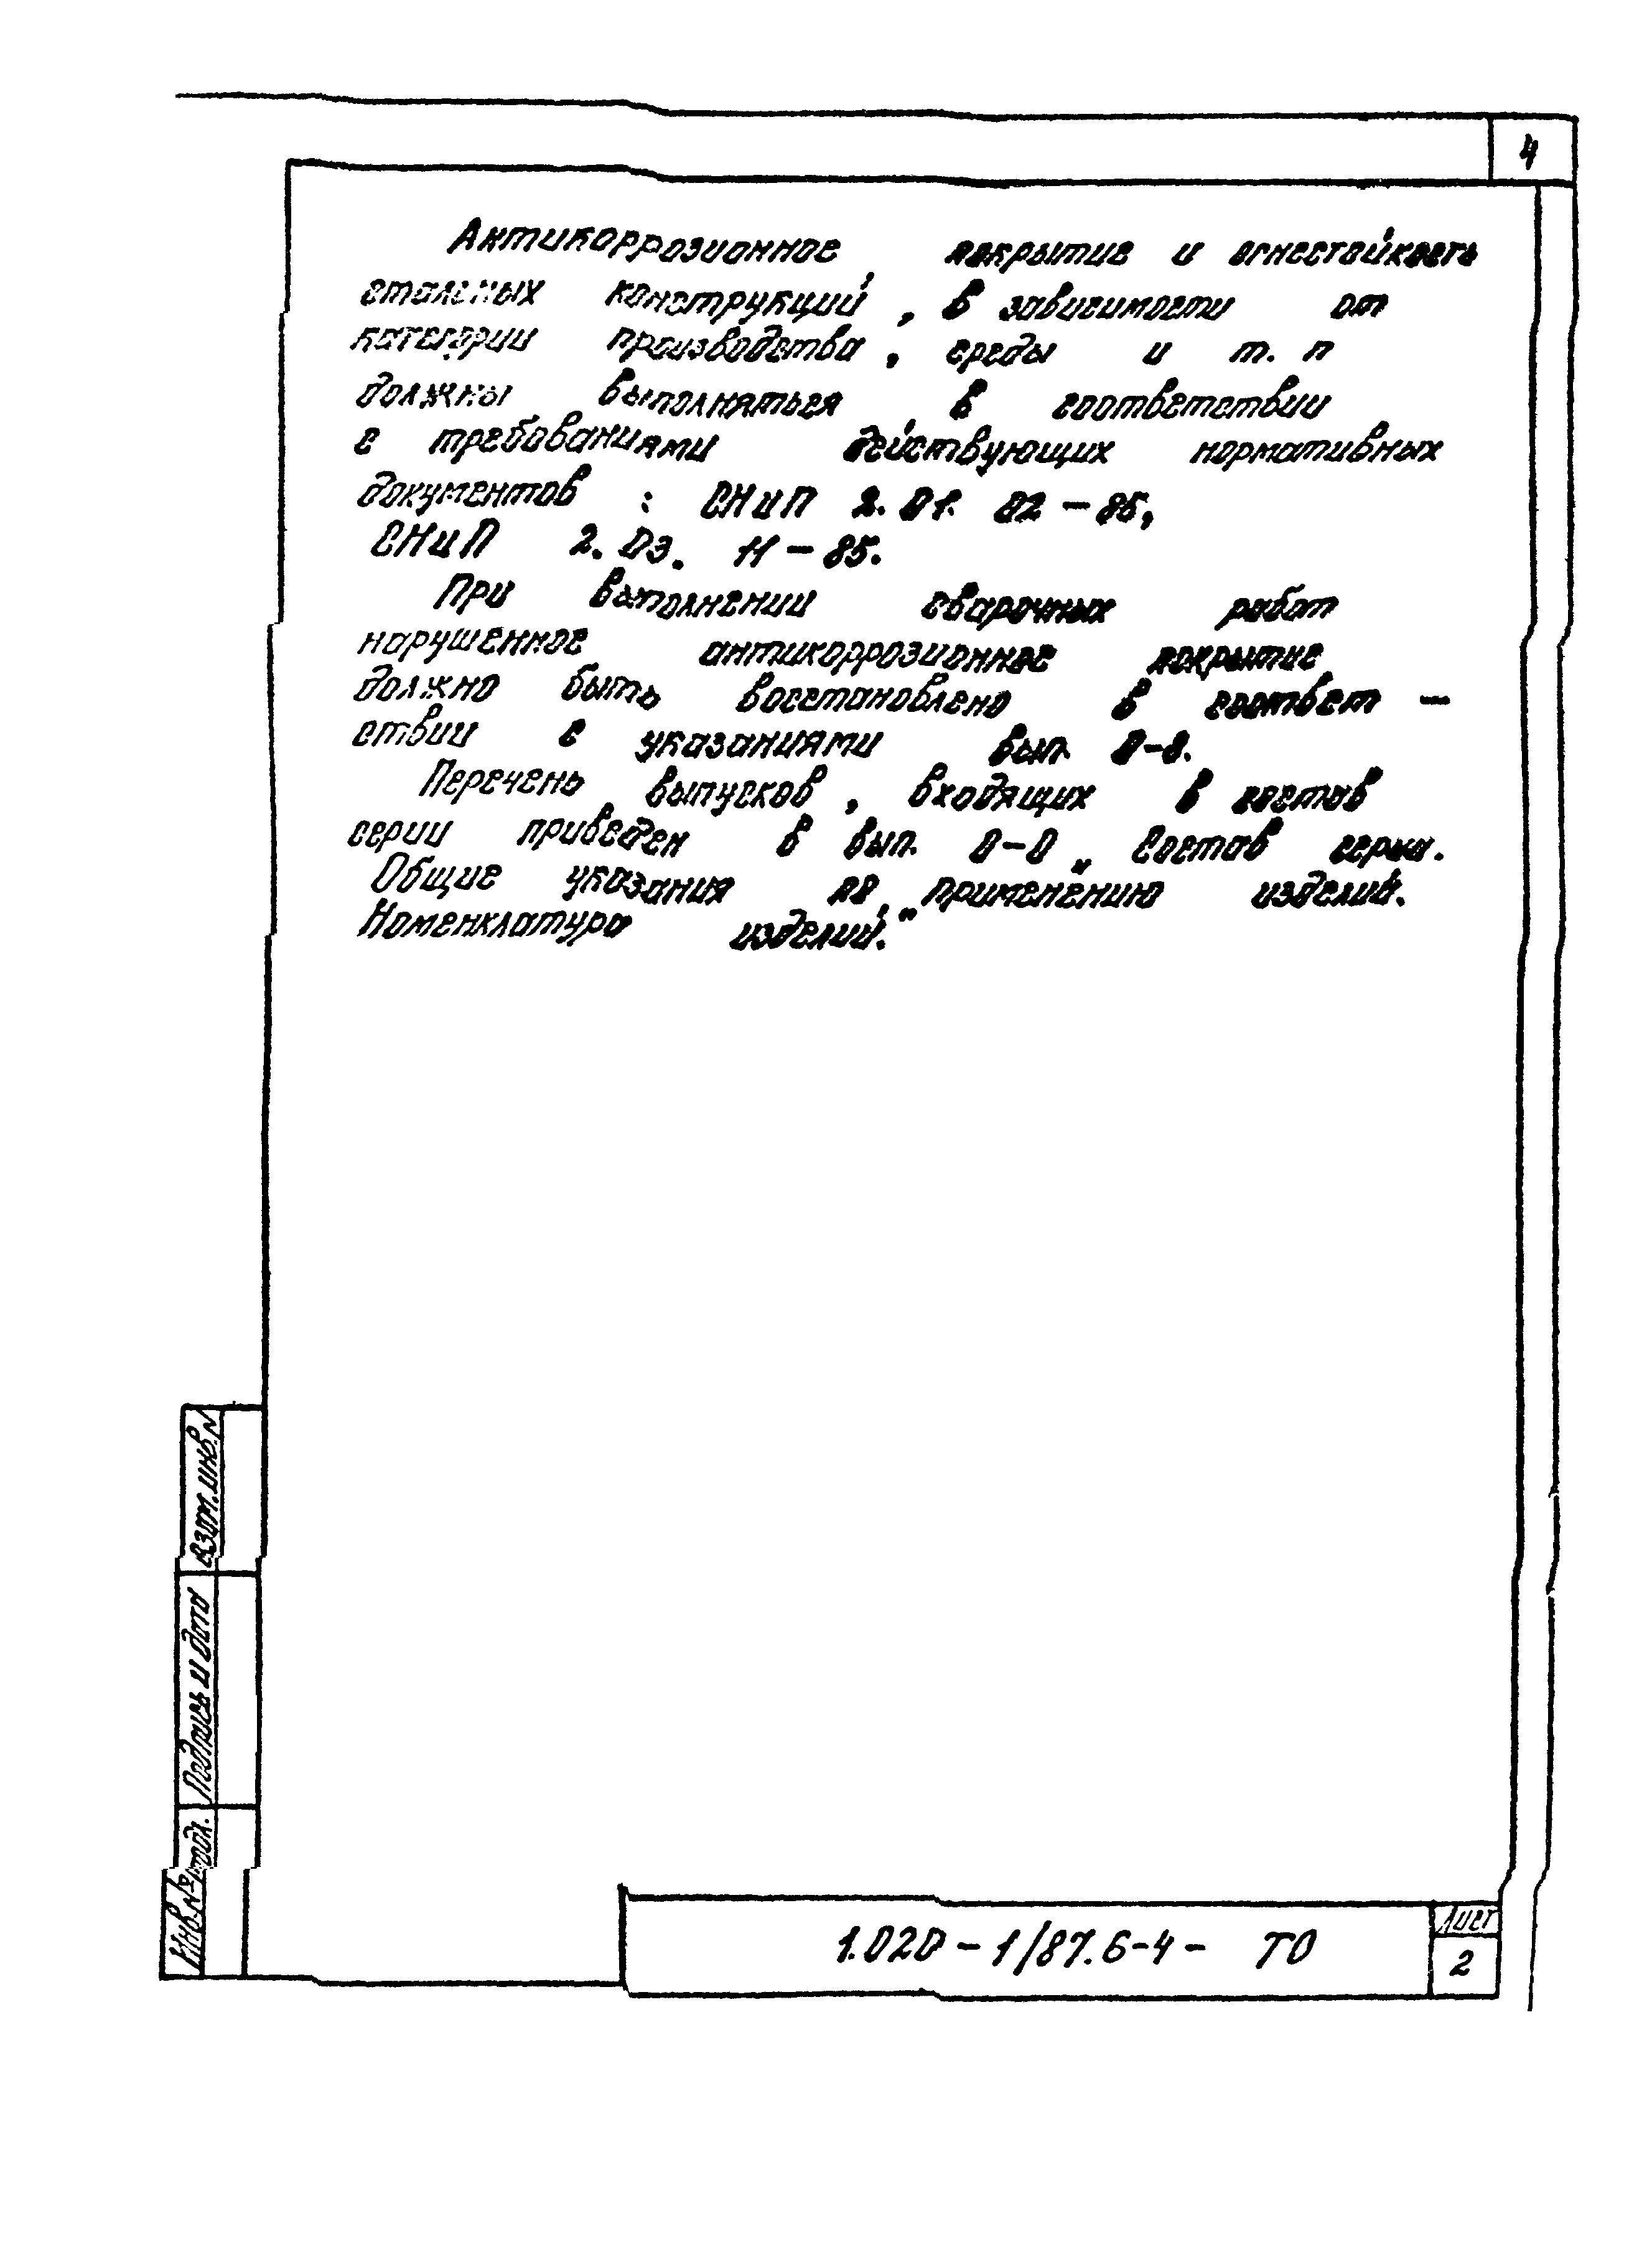 4
Антикоррозионное покрытие и огнестойкость
стальных конструкций, в зависимости от
категории производства, среды и т. п
должны выполняться в соответствии
с требованиями действующих нормативных
документов : СНиП 2.01.02-85,
СНиП 2.03.11-85.
При выполнении сварочных работ
нарушенное антикоррозионное покрытие
должно быть восстановлено в соответ -
ствии с указаниями вып. 0-8.
Перечень выпусков, входящих в состав
серии приведен в вып. 0-0 „Состав серии.
Общие указания по применению изделий.
Номенклатура изделий."
Взам. инв. N
Подпись и дата
Инв. № подл.
1.020-1/87.6-4- ТО
Лист
2